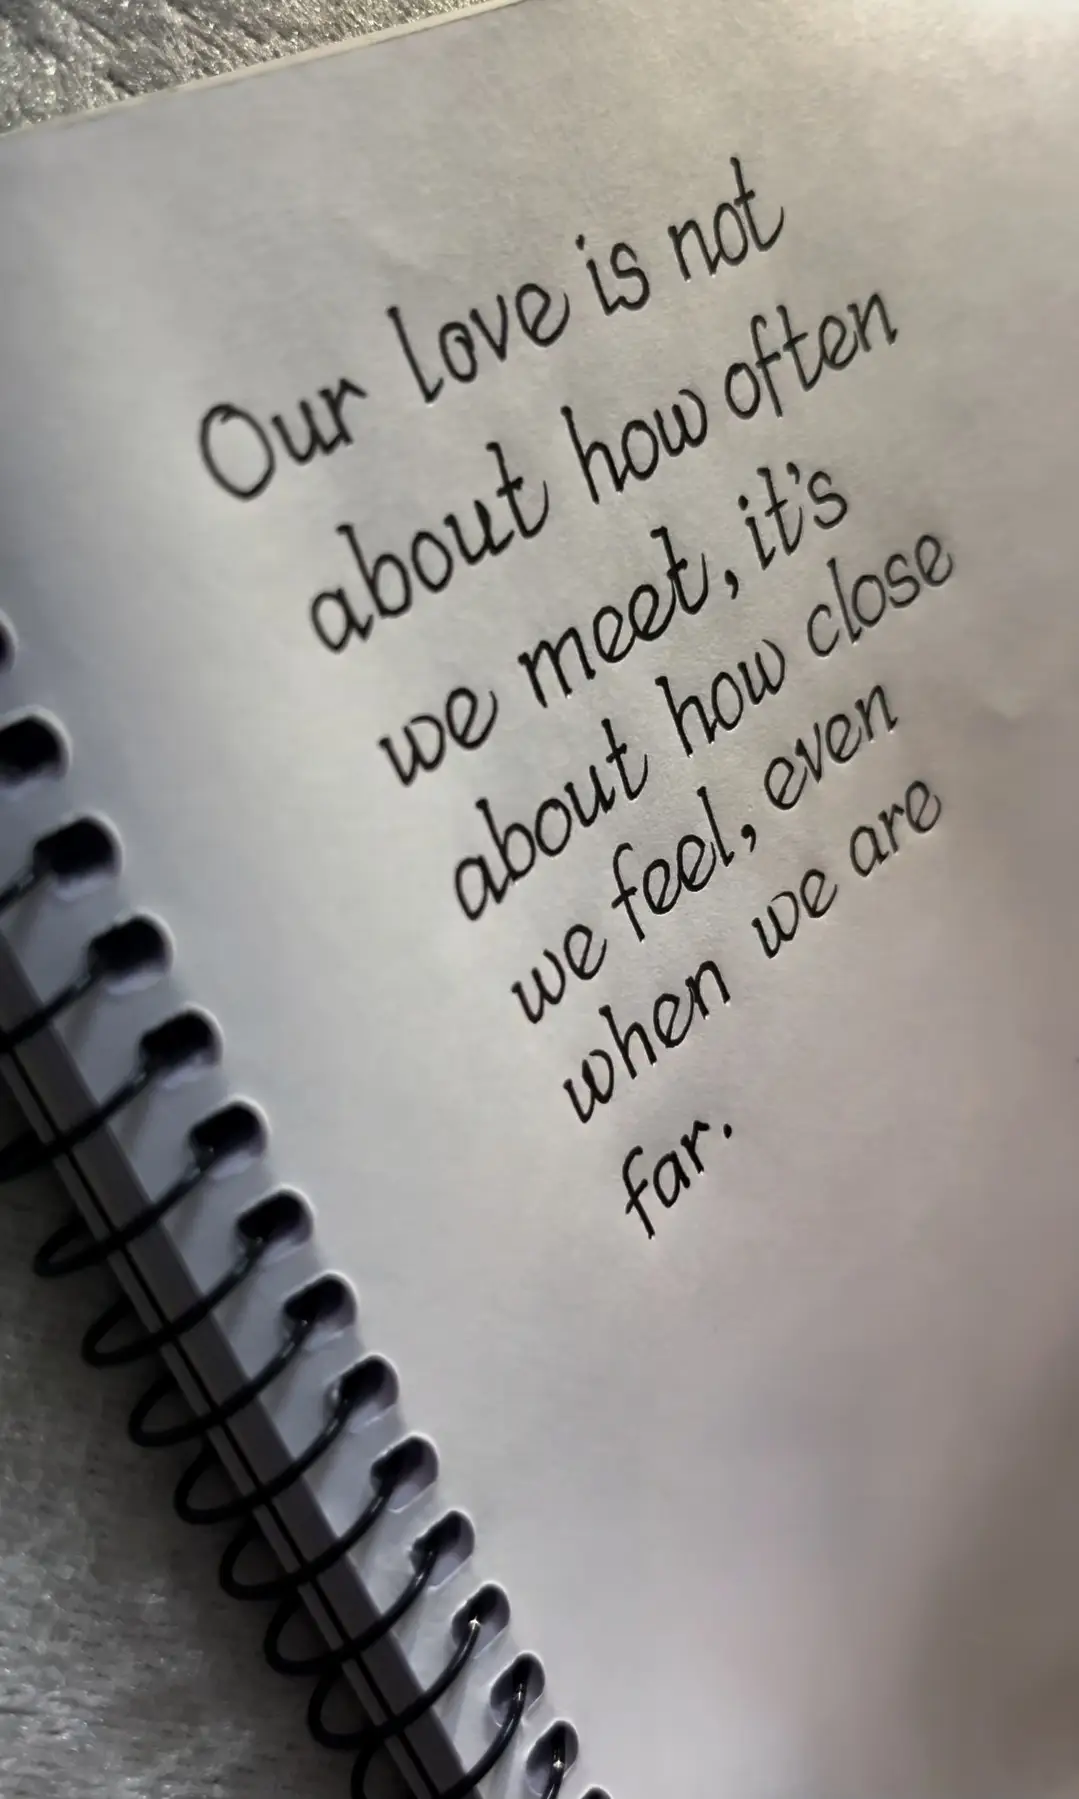 Our love is not
about how often
we meet, it's
about how close
we feel, even
when we are
far.